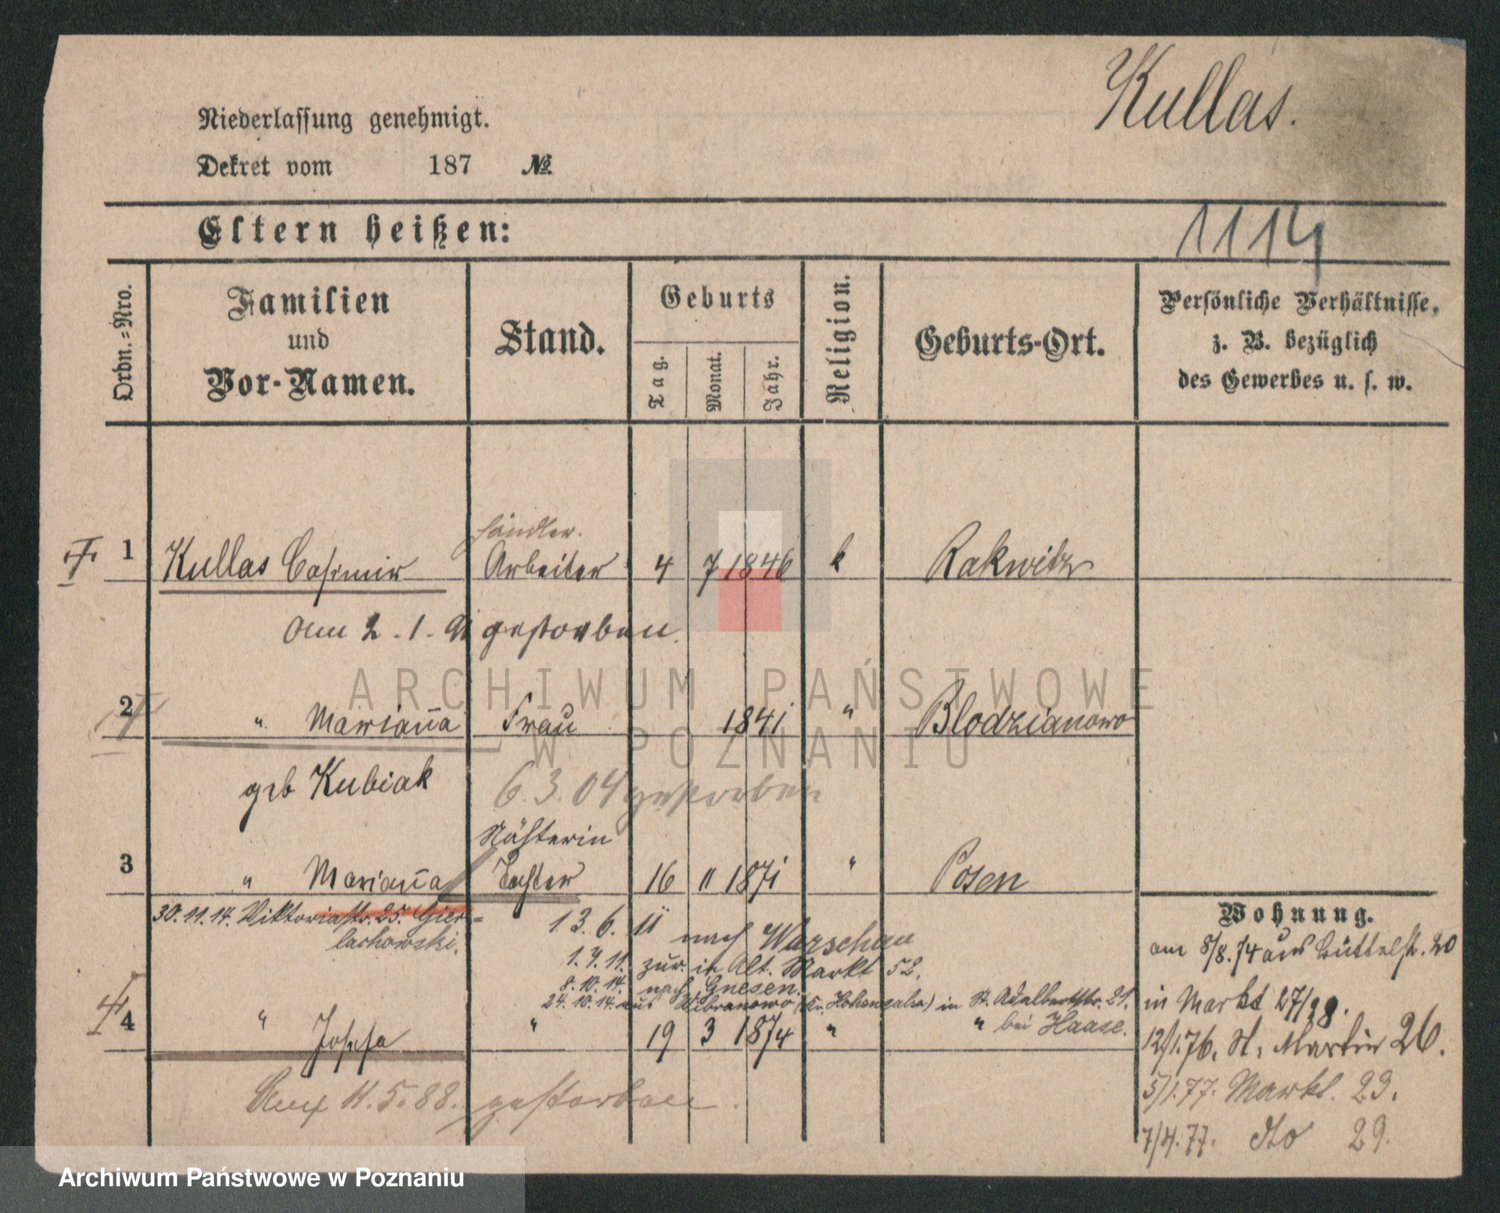 Kullas.
Niederlassung genehmigt.
Dekret vom 187 №
1114
Eltern heißen:
Ordn.-Nro.
Familien und Vor-Namen.
Stand.
Geburts
Tag.
Monat.
Jahr.
Religion.
Geburts-Ort.
Persönliche Verhältnisse,
z. B. bezüglich
des Gewerbes u. s. w.
Händler.
1 Kullas Casimir Arbeiter 4 7 1846 k Rakwitz
am 2.1. gestorben.
2 " Marianna Frau 1841 " Blodzianowo
geb Kubiak 6.3.04 gestorben
Nähterin
3 " Marianna Tochter 16 11 1871 " Posen
30.11.14. Viktoriastr. 25. Gier-
lachowski.
13.6.11 nach Warschau
1.7.11. zur. in Alt. Markt 52.
8.10.14. nach Gnesen.
24.10.14. aus (Kr. Hohensalza) in St. Adalbertstr. 21.
" bei Haase.
4 " Josefa " 19 3 1874 "
11.5.88. gestorben.
Wohnung.
am 8/8.74 aus Büttelstr. 20
in Markt 27/28.
12/1.76. St. Martin 26.
5/1.77. Markt. 29.
7/4.77. dto 29.
ARCHIWUM PAŃSTWOWE
W POZNANIU
Archiwum Państwowe w Poznaniu